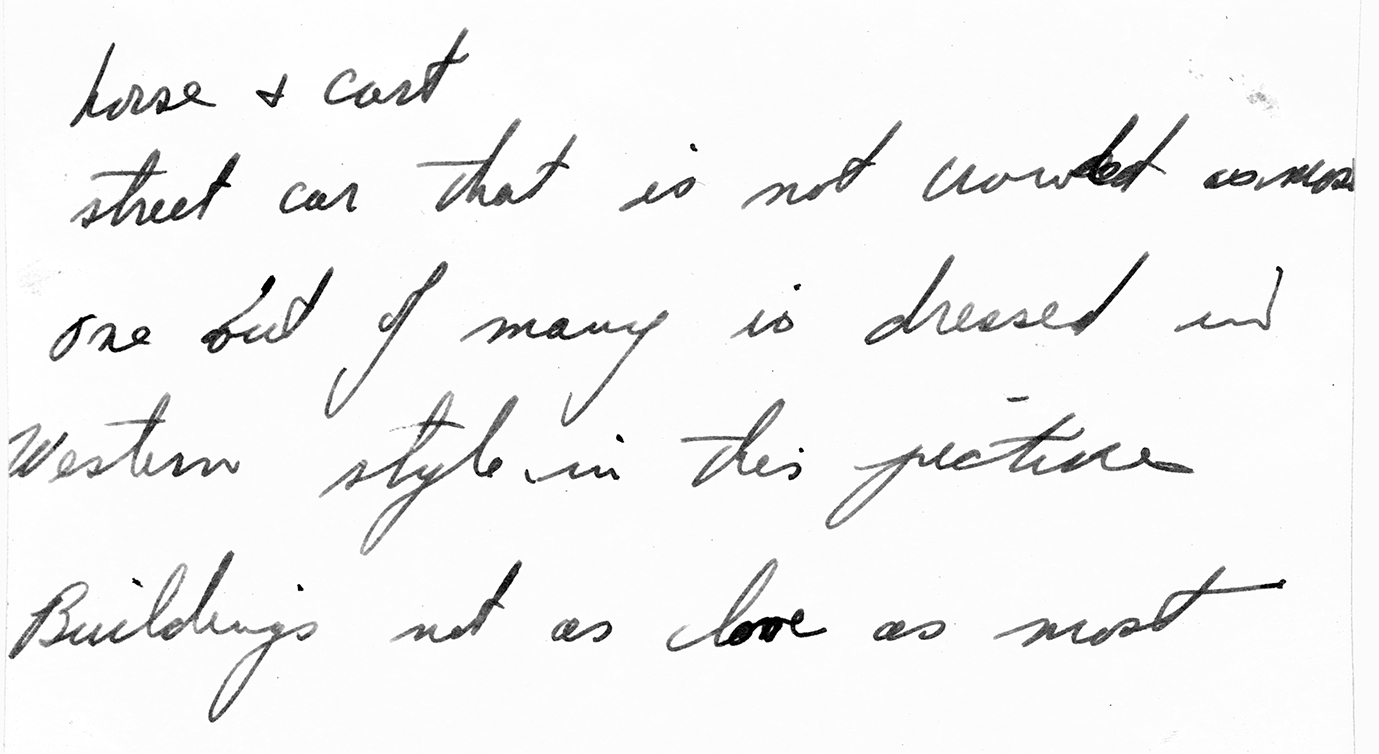 horse & cart
street car that is not crowded as mos
one out of many is dressed in
Western style in this picture
Buildings not as close as most